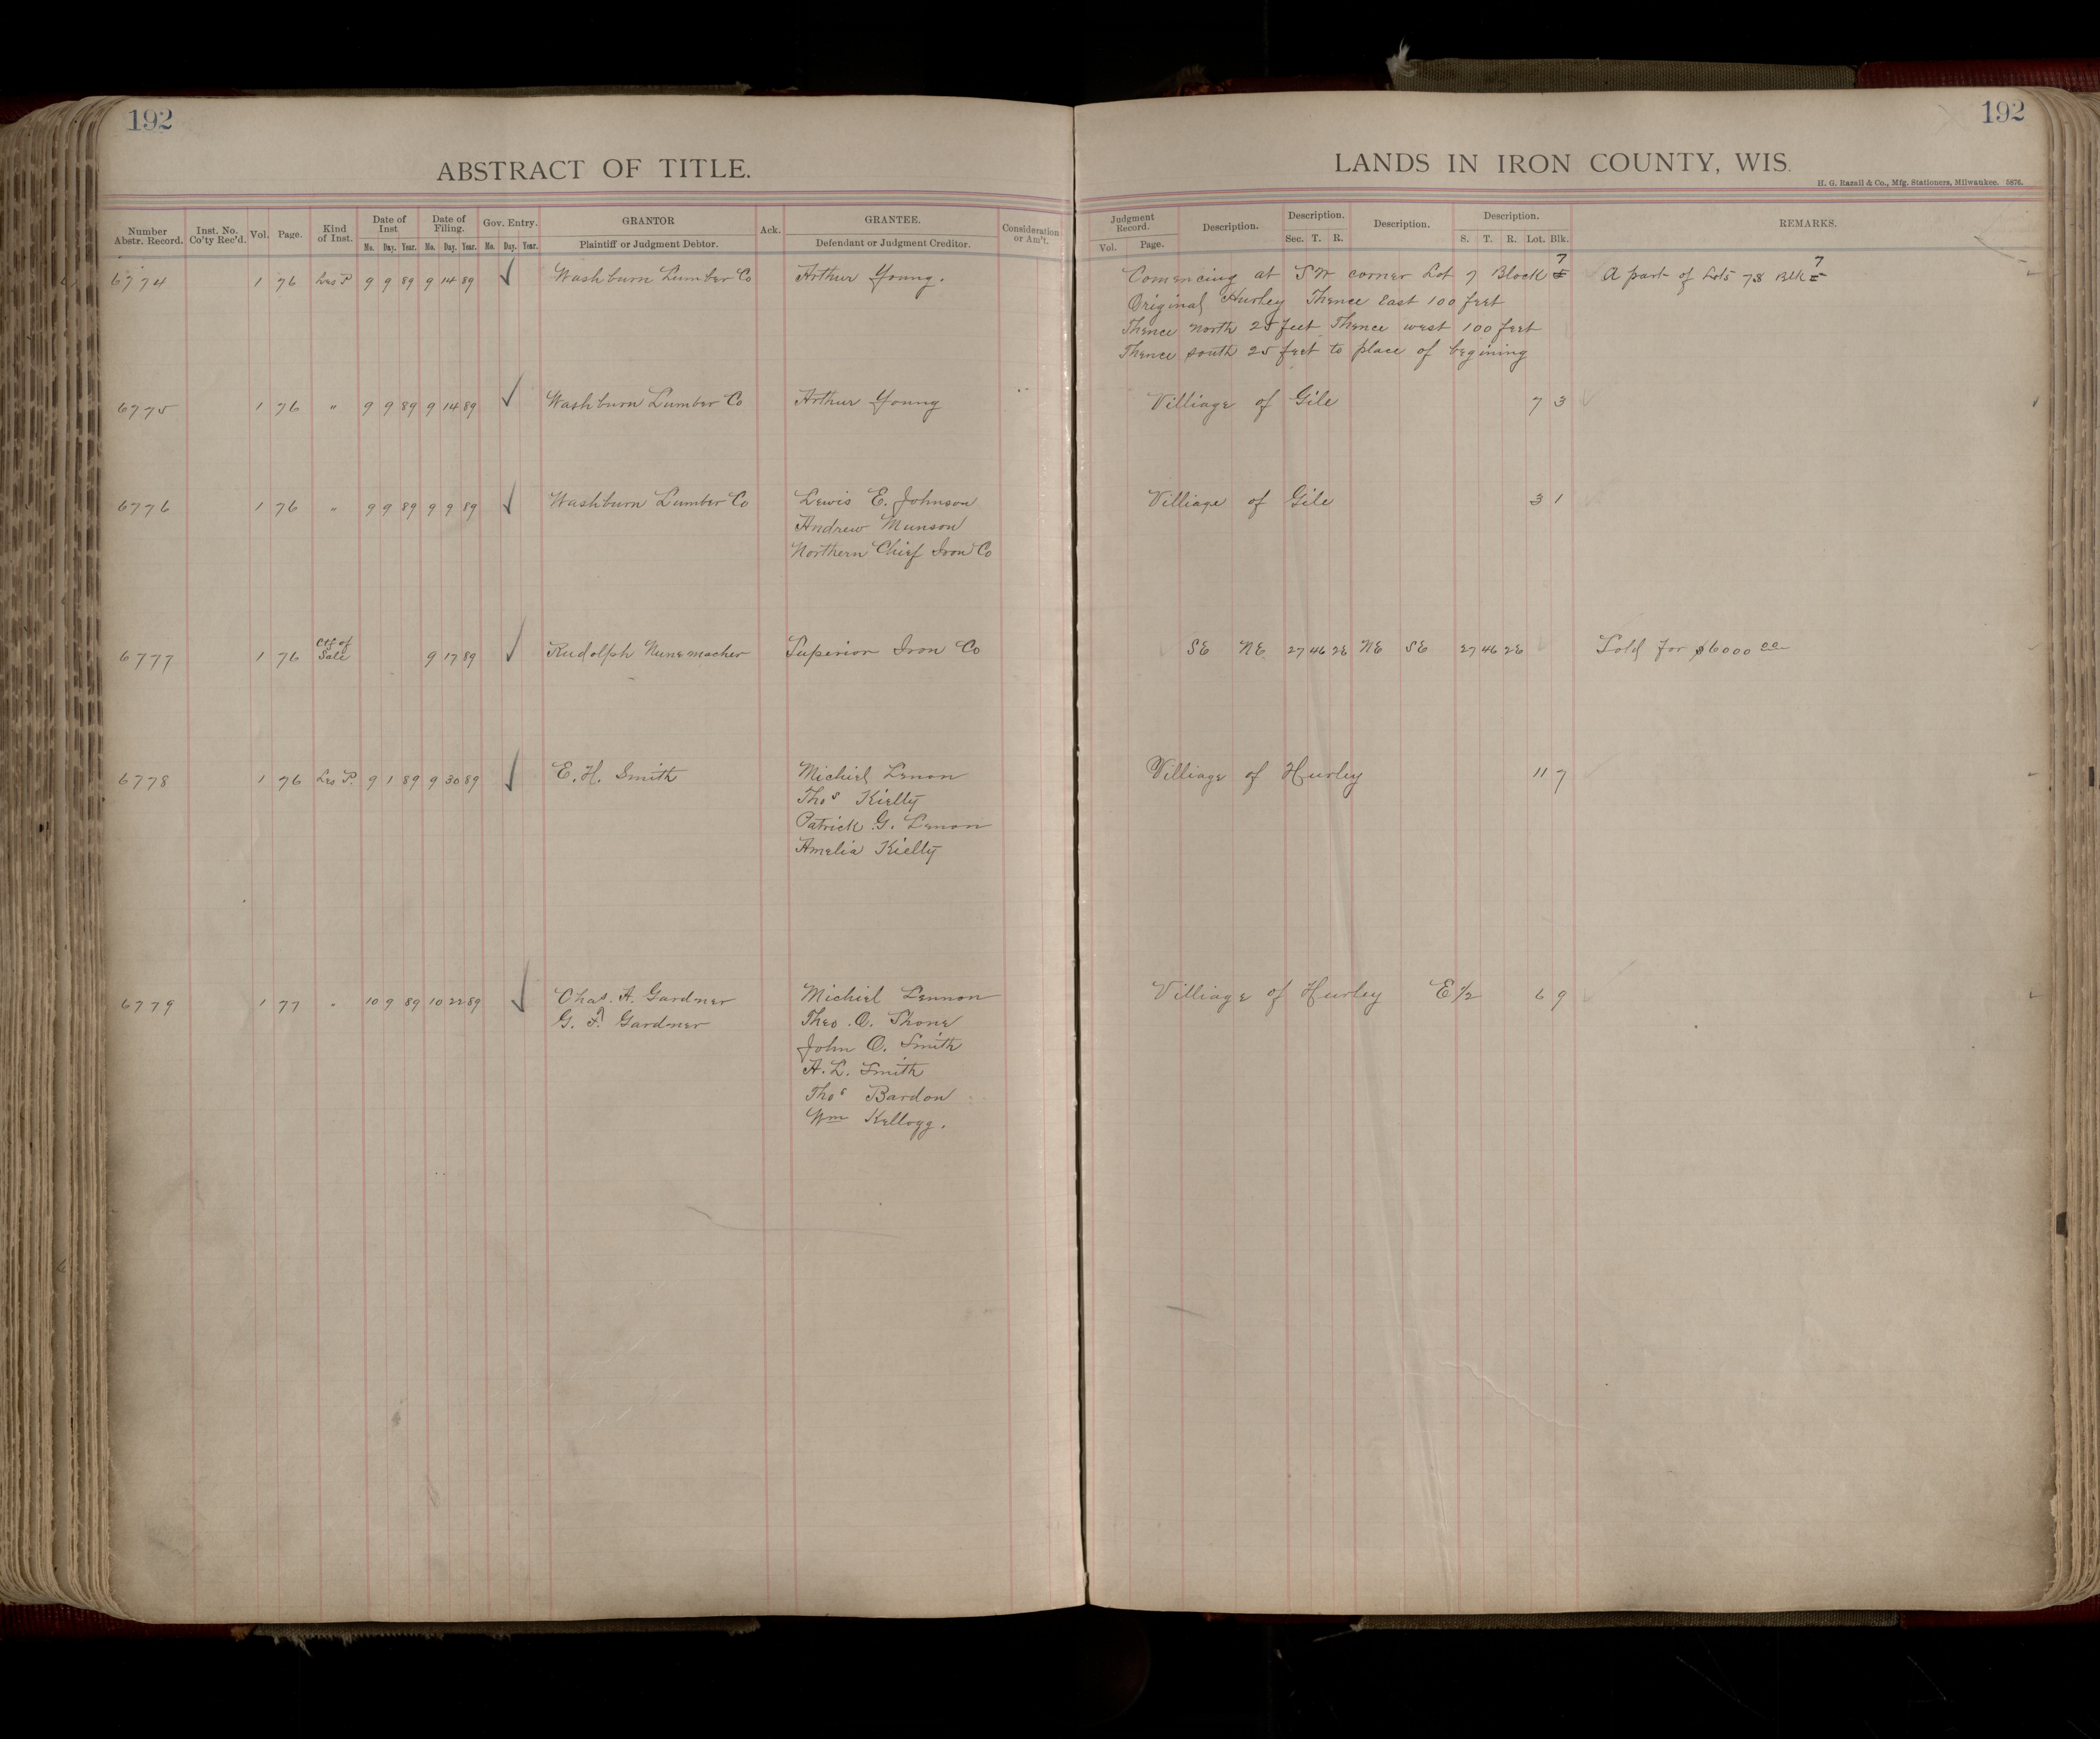 192
192
ABSTRACT OF TITLE.
LANDS IN IRON COUNTY, WIS.
H. G. Razall & Co., Mfg. Stationers, Milwaukee. 5876.
Number Abstr. Record. Inst. No. Co'ty Rec'd. Vol. Page. Kind of Inst. Date of Inst Mo. Day. Year. Date of Filing. Mo. Day. Year. Gov. Entry. Mo. Day. Year. GRANTOR Plaintiff or Judgment Debtor. Ack. GRANTEE. Defendant or Judgment Creditor. Consideration or Am't. Judgment Record. Vol. Page. Description. Description. Sec. T. R. Description. Description. S. T. R. Lot. Blk. REMARKS.
6774 1 76 Les P 9 9 89 9 14 89 ✓ Washburn Lumber Co Arthur Young. Comencing at SW corner Lot 7 Block 5 7 A part of Lots 78 Blk 5 7
Original Hurley Thence East 100 feet
Thence North 25 feet Thence west 100 feet
Thence south 25 feet to place of begining
6775 1 76 " 9 9 89 9 14 89 ✓ Washburn Lumber Co Arthur Young Villiage of Gile 7 3
6776 1 76 " 9 9 89 9 9 89 ✓ Washburn Lumber Co Lewis E. Johnson Villiage of Gile 3 1
Andrew Munson
Northern Chief Iron Co
6777 1 76 Ctf of Sale 9 17 89 ✓ Rudolph Nunemacher Superior Iron Co SE NE 27 46 2E NE SE 27 46 2E Sold for $6000 00
6778 1 76 Les P. 9 1 89 9 30 89 ✓ E. H. Smith Michiel Lenon Villiage of Hurley 11 7
Thos Kielly
Patrick G. Lenon
Amelia Kielly
6779 1 77 " 10 9 89 10 22 89 ✓ Chas. A. Gardner Michiel Lennon Villiage of Hurley E 1/2 6 9
G. Gardner Theo. O. Thone
John O. Smith
A. L. Smith
Thos Bardon
Wm Kellogg.